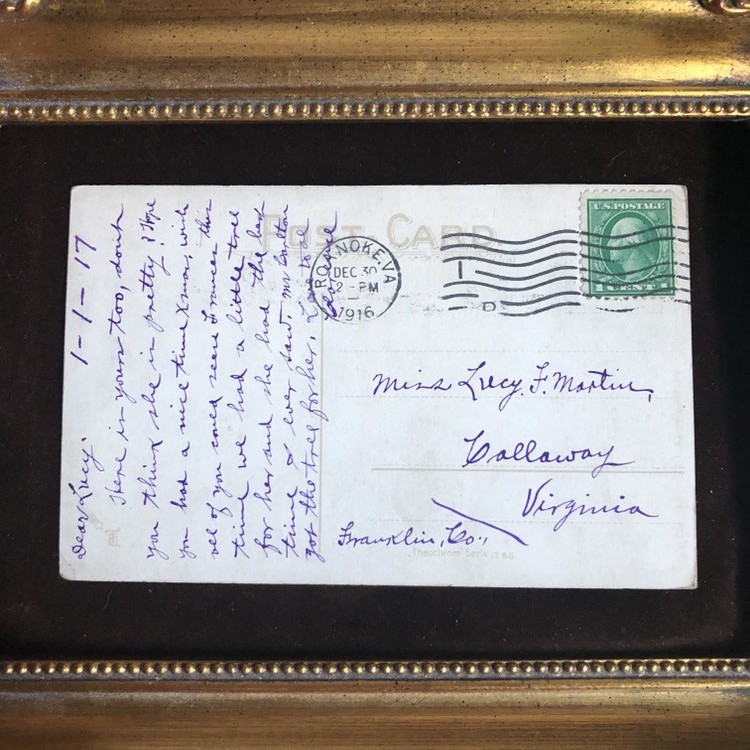 POST CARD
U.S. POSTAGE
1 CENT 1
ROANOKE, VA
DEC 30
2 - PM
1916
Dear Lucy. 1-1-17
Here is yours too, don't
you think she is pretty? Hope
you had a nice time Xmas, wish
you could seen Frances this
time we had a little tree
for her and she had the best
time I ever saw. Mr
got the tree for her. Love to
Miss Lucy. F. Martin,
Callaway
Virginia
Franklin, Co.,
Theochrom Serie 1786